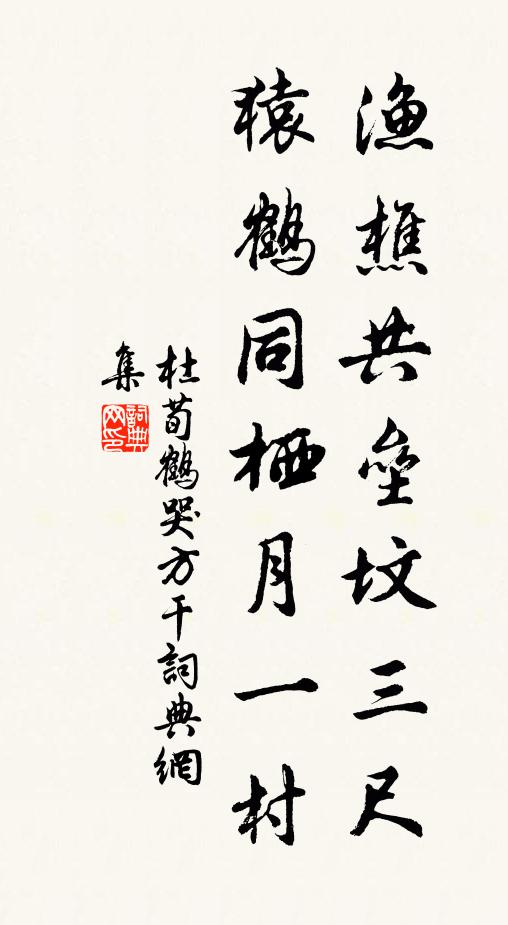 渔樵共垒坟三尺
猿鹤同栖月一村
杜荀鹤哭方干詞典網
集
詞典网印